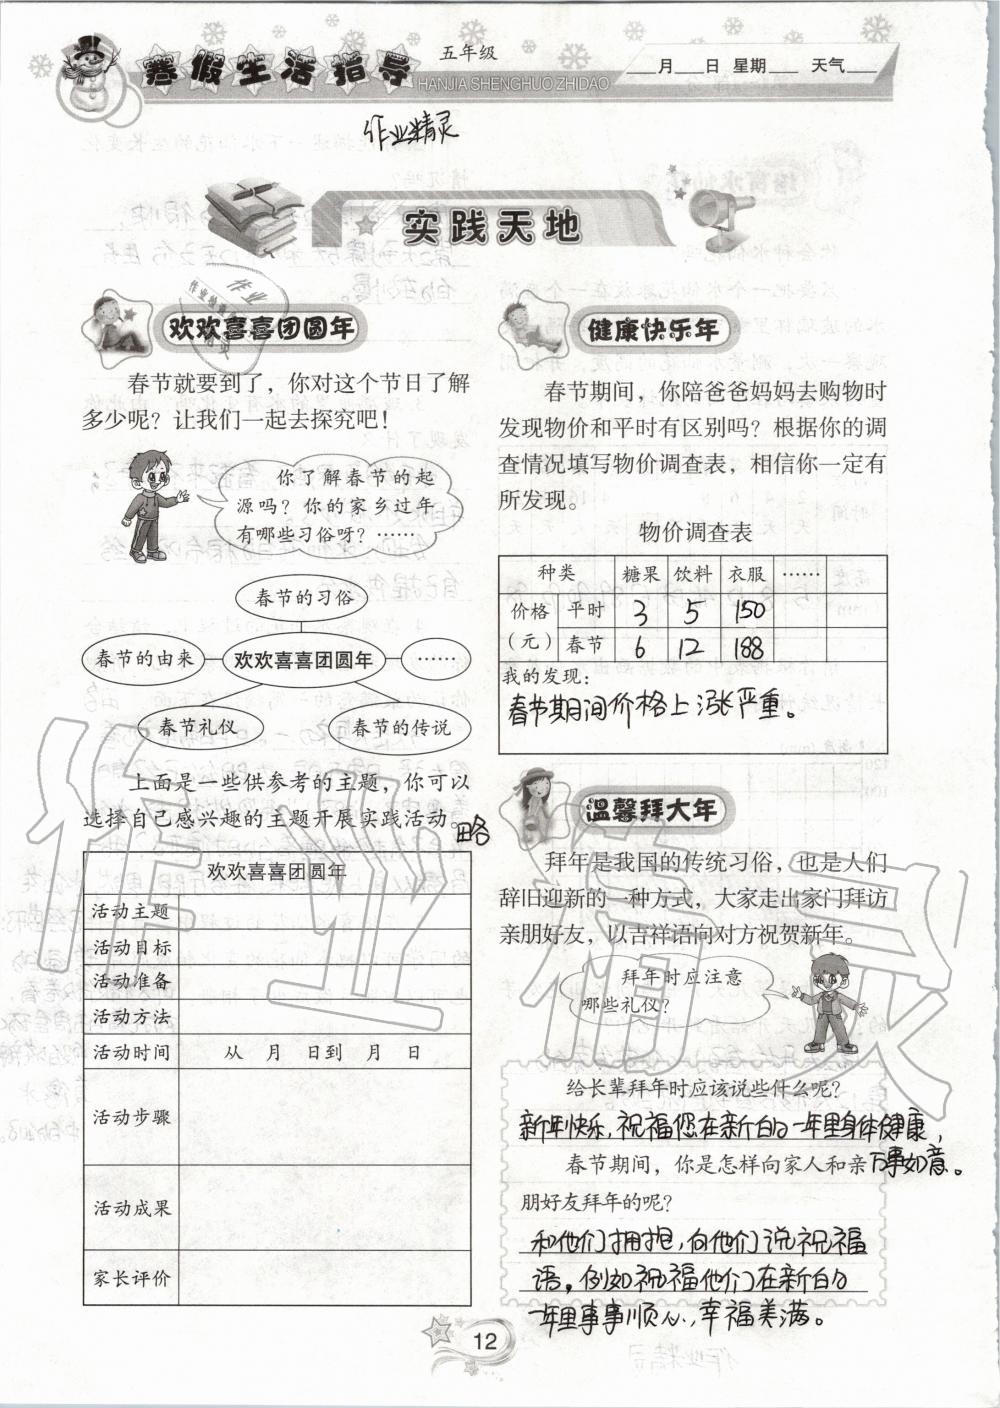 寒假生活指导
五年级
HANJIA SHENGHUO ZHIDAO
___月___日 星期___ 天气___
作业精灵
实践天地
欢欢喜喜团圆年
春节就要到了，你对这个节日了解
多少呢？让我们一起去探究吧！
你了解春节的起
源吗？你的家乡过年
有哪些习俗呀？……
春节的习俗
春节的由来
欢欢喜喜团圆年
……
春节礼仪
春节的传说
上面是一些供参考的主题，你可以
选择自己感兴趣的主题开展实践活动。略
欢欢喜喜团圆年
活动主题
活动目标
活动准备
活动方法
活动时间 从 月 日到 月 日
活动步骤
活动成果
家长评价
健康快乐年
春节期间，你陪爸爸妈妈去购物时
发现物价和平时有区别吗？根据你的调
查情况填写物价调查表，相信你一定有
所发现。
物价调查表
种类 糖果 饮料 衣服 ……
价格（元） 平时 3 5 150
春节 6 12 188
我的发现：
春节期间价格上涨严重。
温馨拜大年
拜年是我国的传统习俗，也是人们
辞旧迎新的一种方式，大家走出家门拜访
亲朋好友，以吉祥语向对方祝贺新年。
拜年时应注意
哪些礼仪？
给长辈拜年时应该说些什么呢？
新年快乐，祝福您在新的一年里身体健康，
万事如意。
春节期间，你是怎样向家人和亲
朋好友拜年的呢？
和他们拥抱，向他们说祝福
语，例如祝福他们在新的
一年里事事顺心，幸福美满。
12
作业精灵